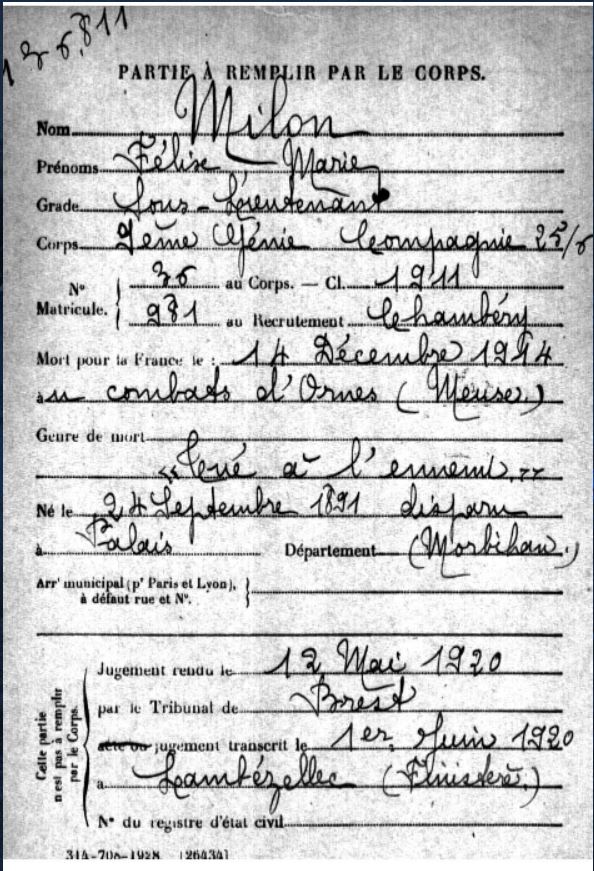 136.811
PARTIE À REMPLIR PAR LE CORPS.
Nom Milon
Prénoms Félix Marie
Grade Sous-Lieutenant
Corps 9ème Génie Compagnie 25/6
N° Matricule. 36 au Corps. — Cl. 1911
981 au Recrutement Chambéry
Mort pour la France le : 14 Décembre 1914
au combats d'Ornes (Meuse.)
Genre de mort
"Tué à l'ennemi."
Né le 24 Septembre 1891 disparu
à Palais Département (Morbihan.)
Arrt municipal (pr Paris et Lyon),
à défaut rue et N°.
Cette partie n'est pas à remplir par le Corps.
Jugement rendu le 12 Mai 1920
par le Tribunal de Brest
acte ou jugement transcrit le 1er Juin 1920
à Lambézellec (Finistère.)
N° du registre d'état civil
314-708-1928. [26434]